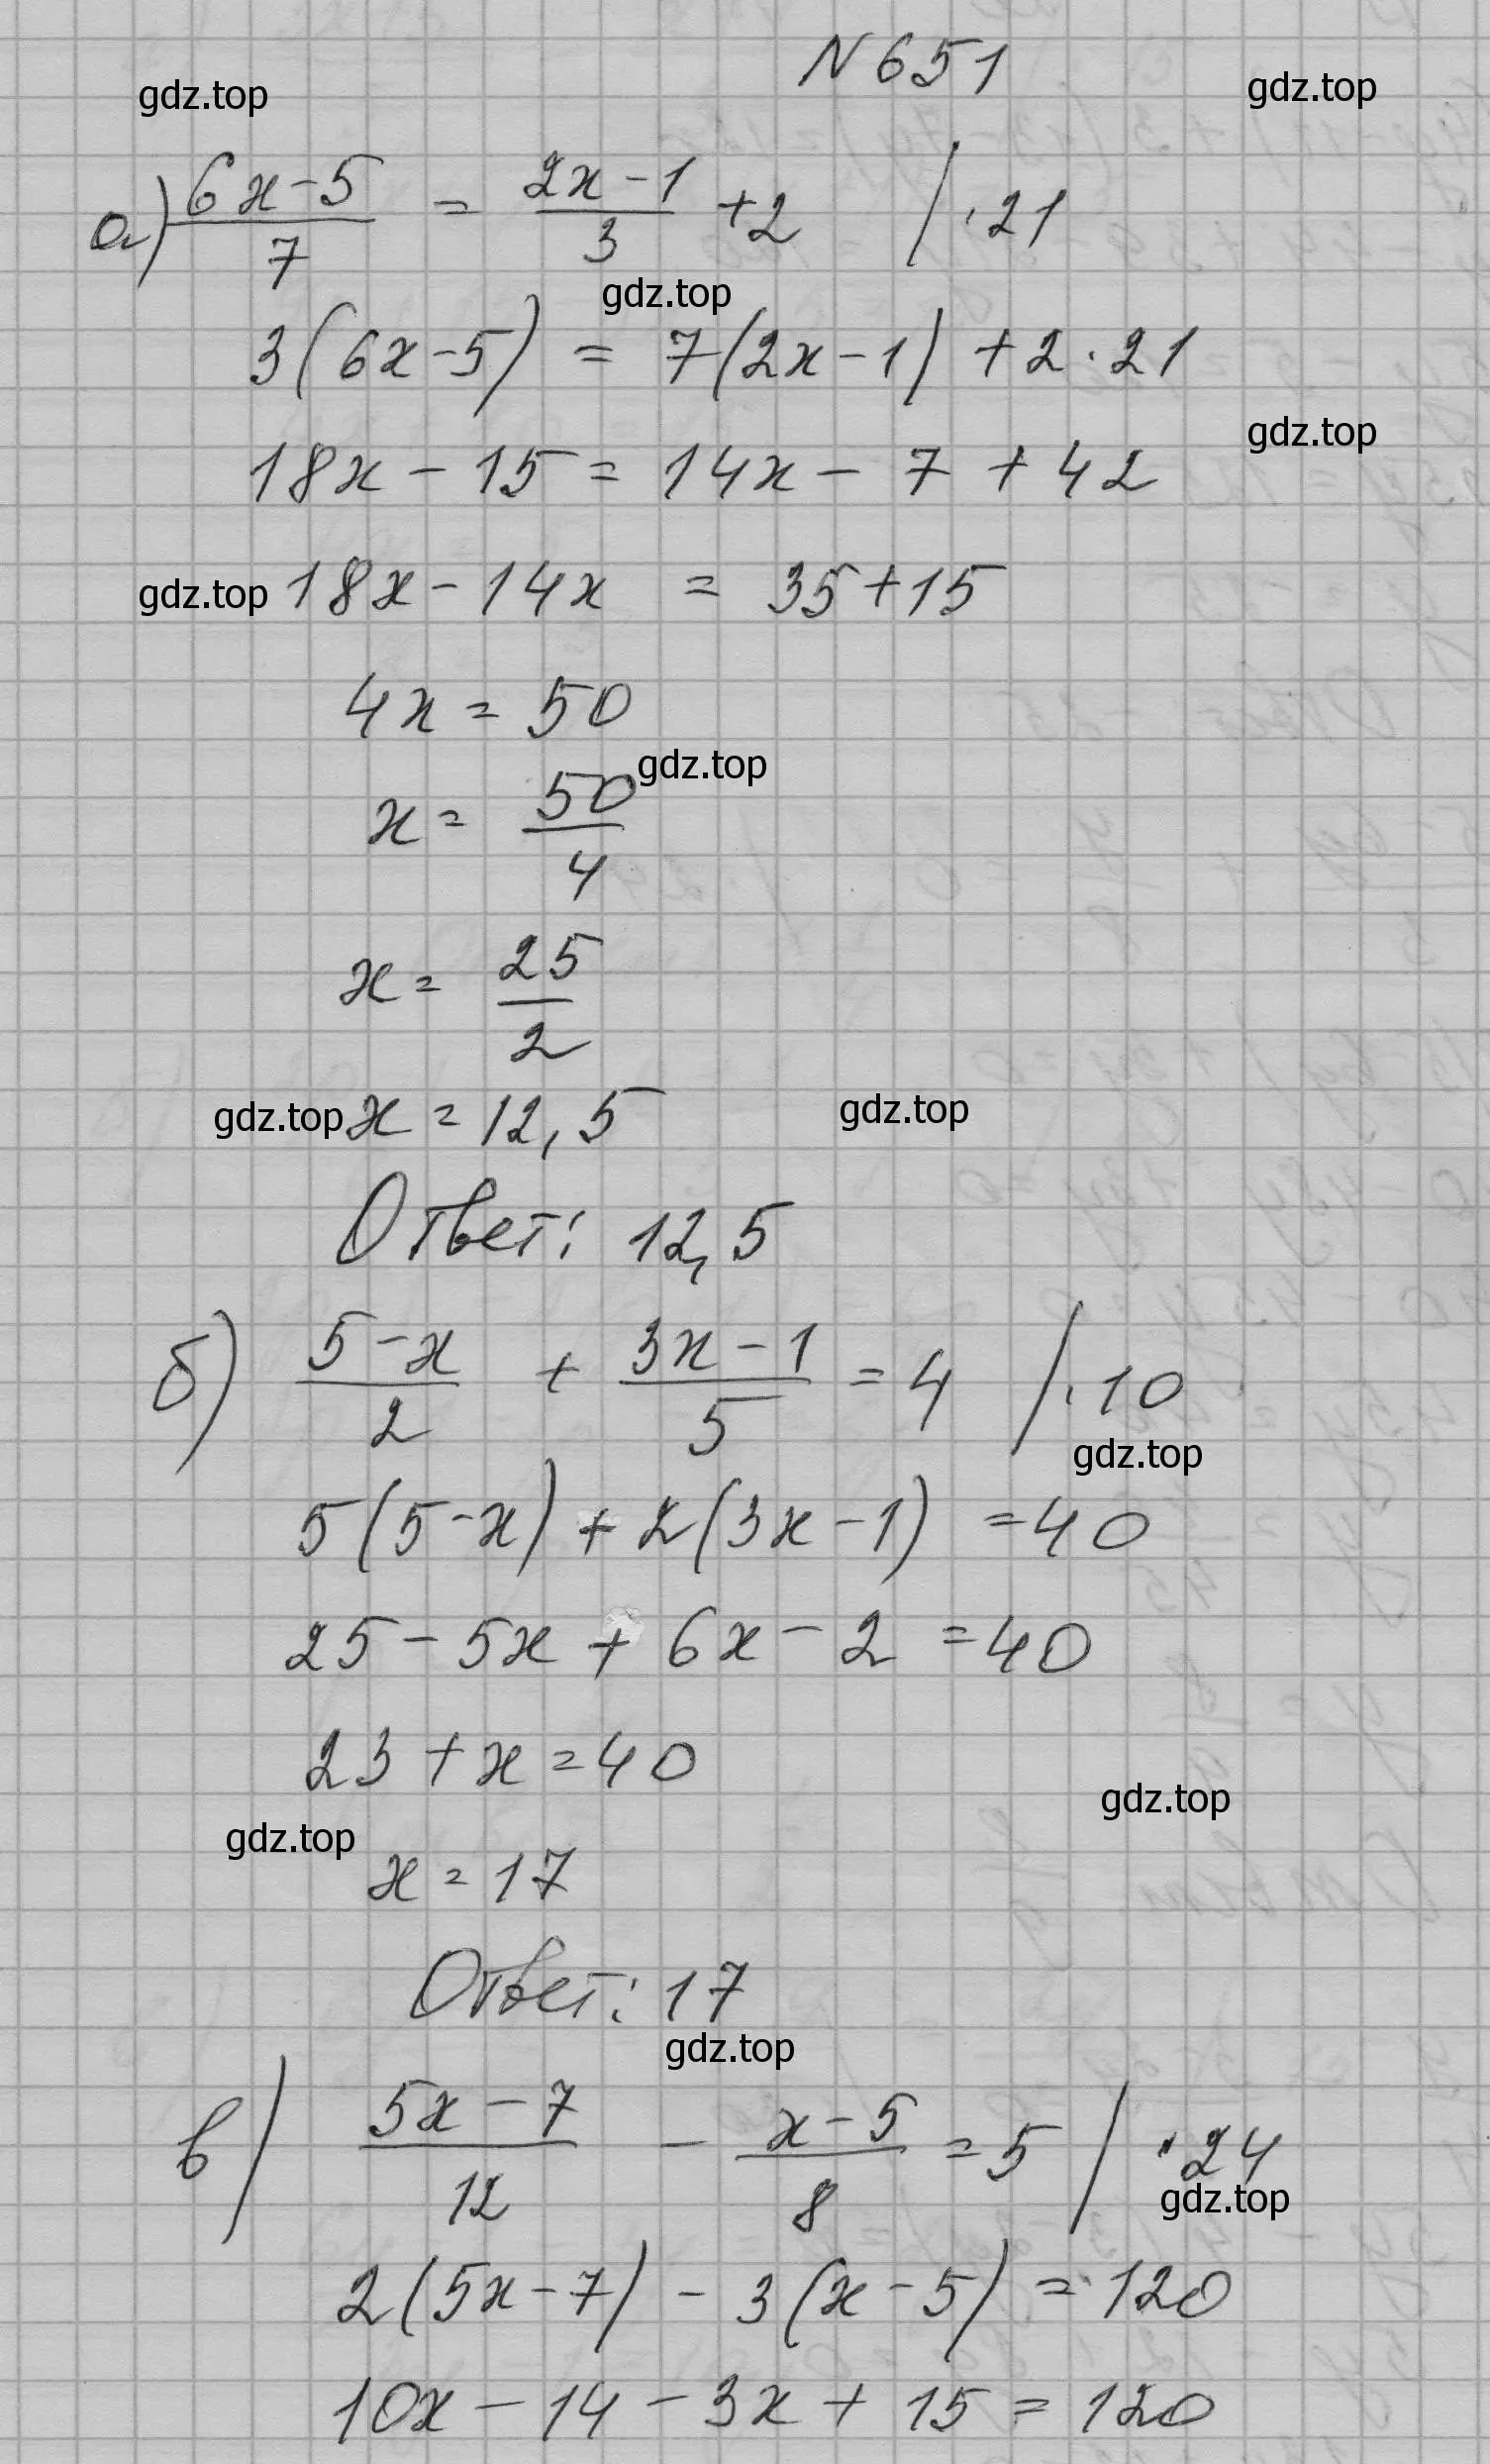 N 651
gdz.top gdz.top
а) (6x-5)/7 = (2x-1)/3 + 2 / ·21
gdz.top
3(6x-5) = 7(2x-1) + 2·21
gdz.top
18x - 15 = 14x - 7 + 42
gdz.top 18x - 14x = 35 + 15
4x = 50
gdz.top
x = 50/4
x = 25/2
gdz.top x = 12,5 gdz.top
Ответ: 12,5
б) (5-x)/2 + (3x-1)/5 = 4 / ·10
gdz.top
5(5-x) + 2(3x-1) = 40
25 - 5x + 6x - 2 = 40
23 + x = 40
gdz.top
gdz.top x = 17
Ответ: 17
gdz.top
в) (5x-7)/12 - (x-5)/8 = 5 / ·24
gdz.top
2(5x-7) - 3(x-5) = 120
10x - 14 - 3x + 15 = 120